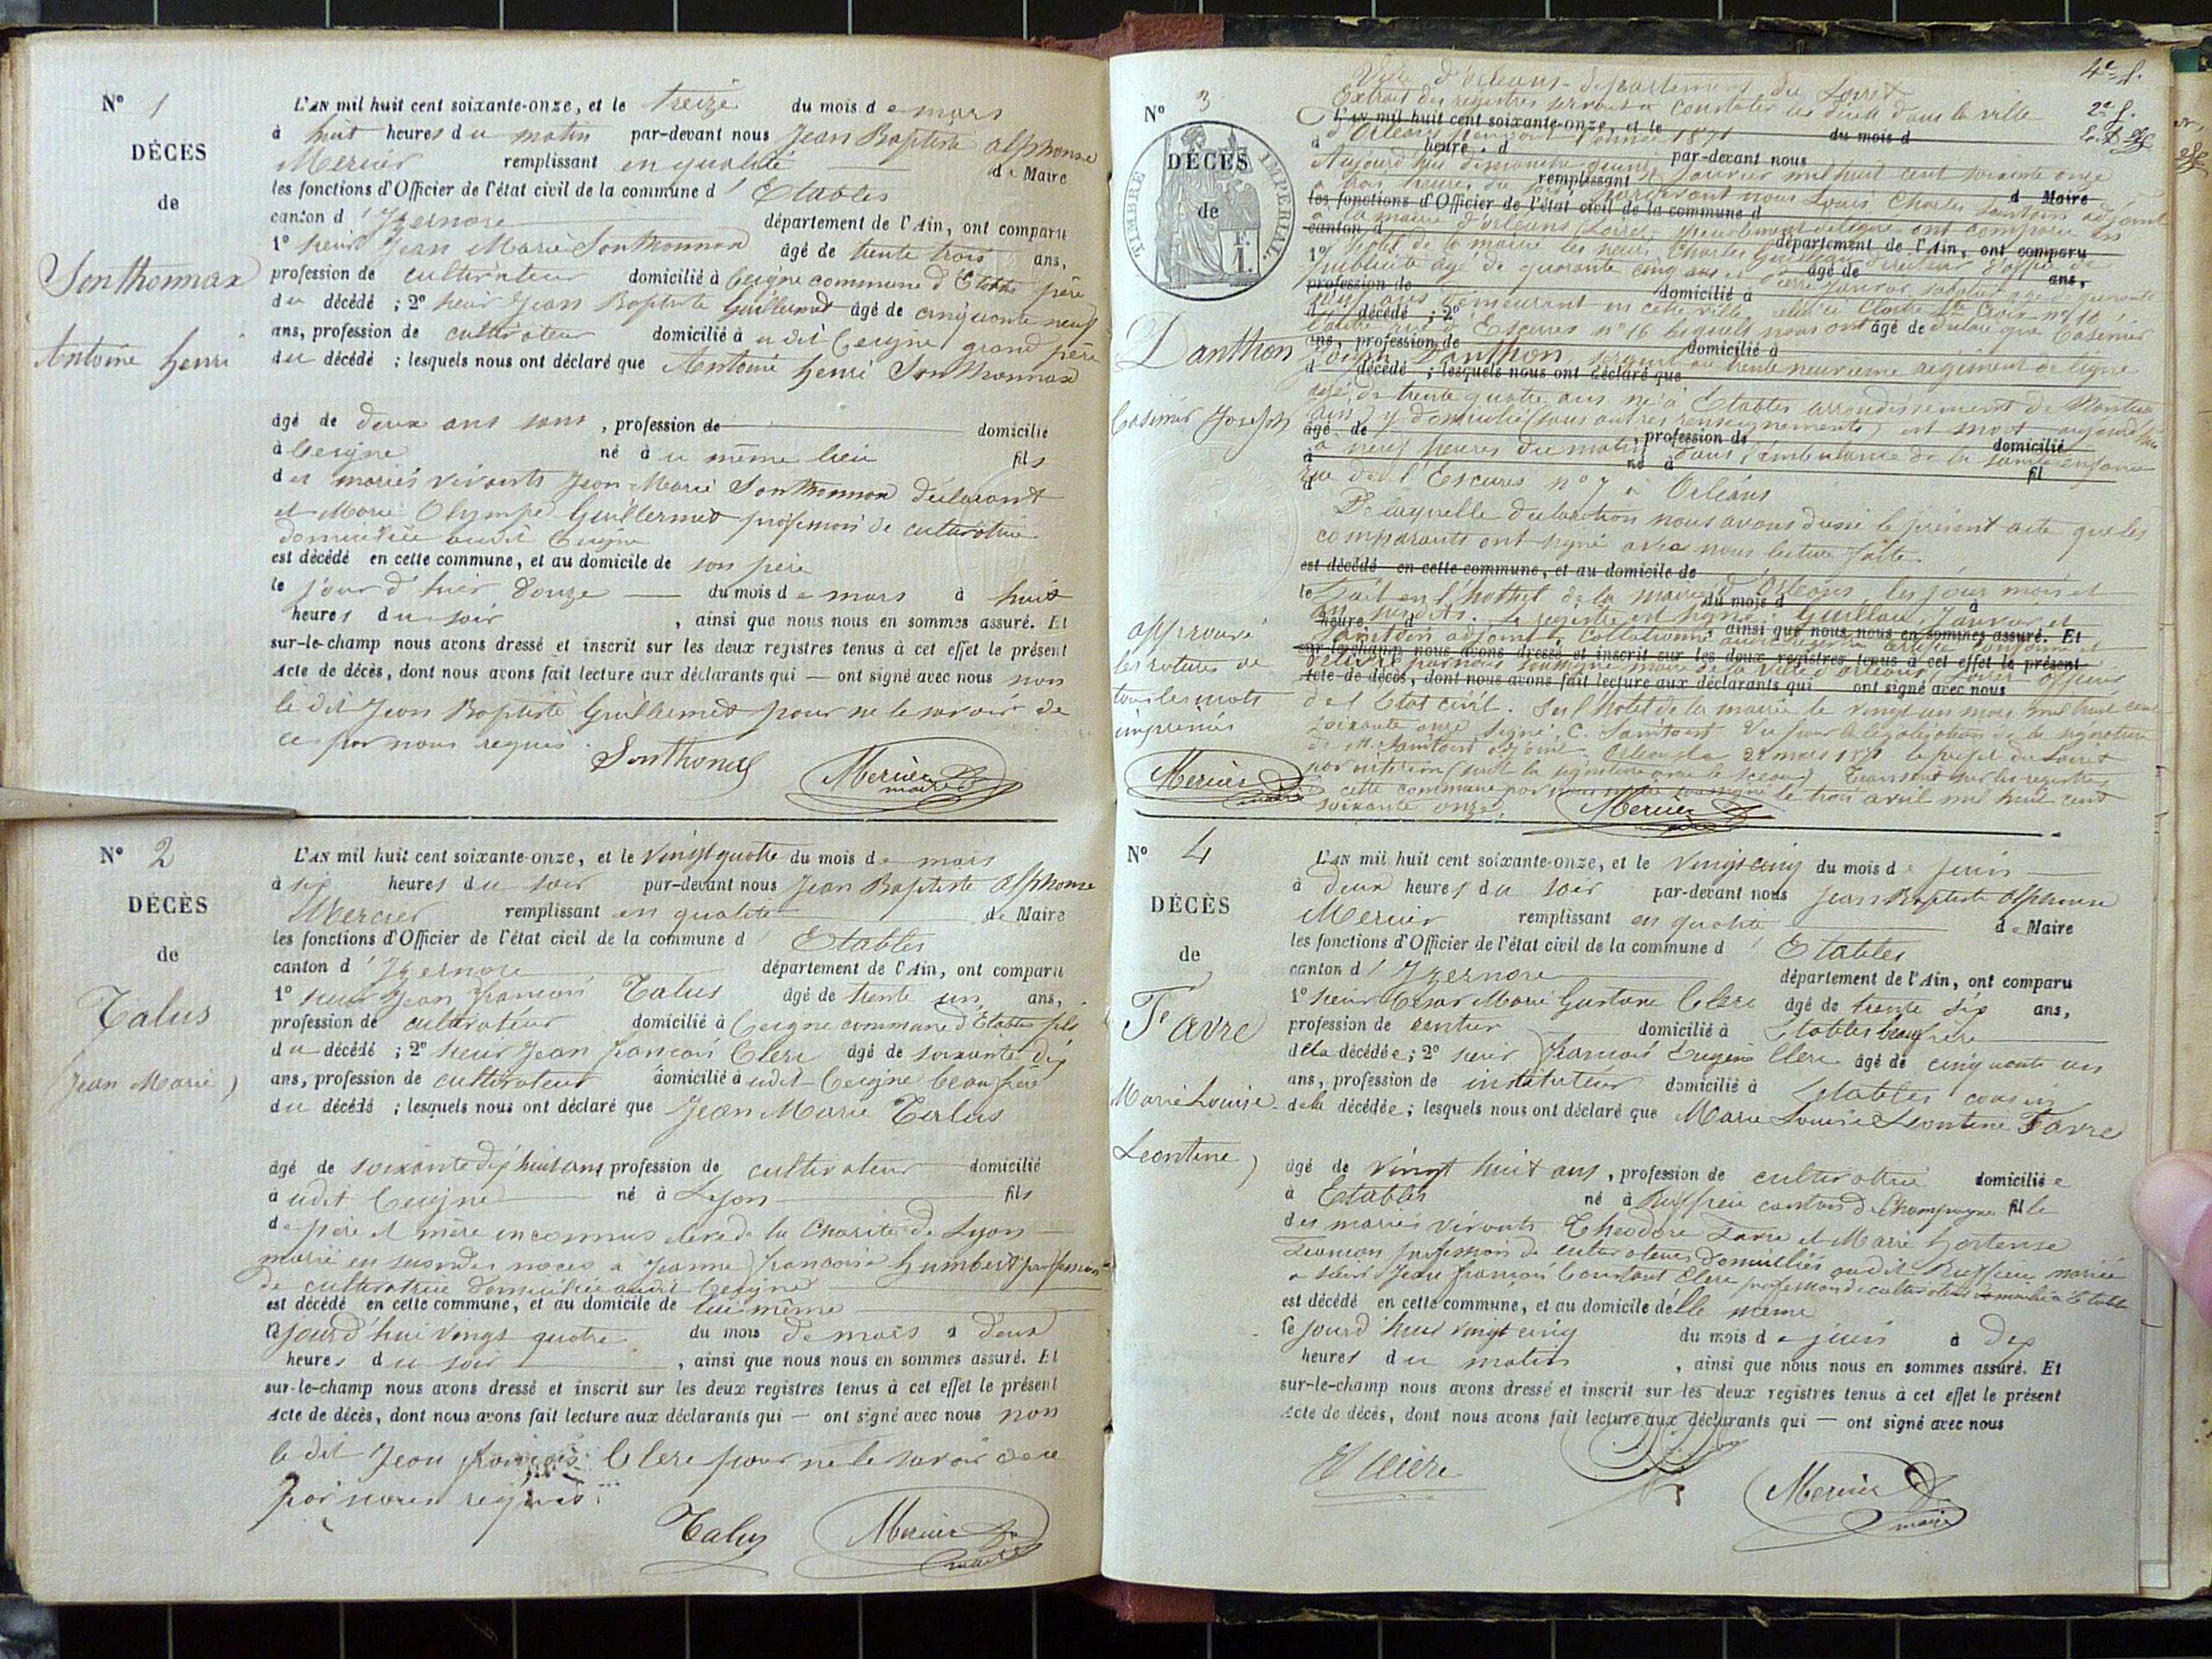 N° 1
DÉCÈS
de
Sonthonnax
Antoine henri
L'AN mil huit cent soixante-onze, et le treize du mois de mars
à huit heures du matin par-devant nous Jean Baptiste alphonse
Mercier remplissant en qualité de Maire
les fonctions d'Officier de l'état civil de la commune d'Etables
canton d'Izernore département de l'Ain, ont comparu
1° sieur Jean Marie Sonthonnax âgé de trente trois ans,
profession de cultivateur domicilié à Ceigne commune d'Etables père
du décédé ; 2° sieur Jean Baptiste Guillermet âgé de cinquante neuf
ans, profession de cultivateur domicilié à udit Ceigne grand père
du décédé ; lesquels nous ont déclaré que Antoine henri Sonthonnax
âgé de deux ans sans , profession de domicilié
à Ceigne né à u même lieu fils
des mariés vivants Jean Marie Sonthonnax déclarant
et Marie Olympe Guillermet profession de cultivatrice
domiciliée audit Ceigne
est décédé en cette commune, et au domicile de son père
le jour d'hier douze du mois de mars à huit
heures du soir , ainsi que nous nous en sommes assuré. Et
sur-le-champ nous avons dressé et inscrit sur les deux registres tenus à cet effet le présent
Acte de décès, dont nous avons fait lecture aux déclarants qui — ont signé avec nous non
le dit Jean Baptiste Guillermet pour ne le savoir de
ce par nous requis.
Sonthonax Mercier
maire
N° 2
DÉCÈS
de
Talus
Jean Marie
L'AN mil huit cent soixante-onze, et le vingt quatre du mois de mars
à six heures du soir par-devant nous Jean Baptiste Alphonse
Mercier remplissant en qualité de Maire
les fonctions d'Officier de l'état civil de la commune d'Etables
canton d'Izernore département de l'Ain, ont comparu
1° sieur Jean françois Talus âgé de trente un ans,
profession de cultivateur domicilié à Ceigne commune d'Etables fils
du décédé ; 2° sieur Jean françois Clerc âgé de soixante dix
ans, profession de cultivateur domicilié à udit Ceigne beau frère
du décédé ; lesquels nous ont déclaré que Jean Marie Talus
âgé de soixante dix huit ans profession de cultivateur domicilié
à udit Ceigne né à Lyon fils
de père et mère inconnus eleve de la Charité de Lyon
marié en secondes noces à Jeanne françoise humbert profession
de cultivatrice domiciliée audit Ceigne
est décédé en cette commune, et au domicile de lui même
le jourd'hui vingt quatre du mois de mars à deux
heures du soir , ainsi que nous nous en sommes assuré. Et
sur-le-champ nous avons dressé et inscrit sur les deux registres tenus à cet effet le présent
Acte de décès, dont nous avons fait lecture aux déclarants qui — ont signé avec nous non
le dit Jean françois Clerc pour ne le savoir de ce
par nous requis.
Talus Mercier
maire
4e f.
2e f.
N° 3
DÉCÈS
de
TIMBRE IMPERIAL
1 F.
Danthon
Casimir Joseph
Ville d'Orleans - departement du Loiret
Extrait des registres servant a constater les décès dans la ville
L'AN mil huit cent soixante-onze, et le du mois d
d'Orleans pendant l'année 1871
à heure d par-devant nous
Aujourd'hui dimanche quinze Janvier mil huit cent soixante onze
remplissant d Maire
a trois heures du soir pardevant nous Louis Charles Saintoin adjoint
les fonctions d'Officier de l'état civil de la commune d
a la mairie d'orleans (Loiret) specialement délégué ont comparu en
canton d département de l'Ain, ont comparu
l'hotel de la mairie les sieurs Charles Guilleau directeur d'office de
1° âgé de ans,
publicité agé de quarante cinq ans et Pierre Janvier
profession de domicilié à
neuf ans demeurant en cette ville, celui ci Cloitre Ste Croix n° 10
d décédé ; 2° âgé de
l'autre rue d'Escures n° 16 lesquels nous ont déclaré que Casimir
ans, profession de domicilié à
Joseph Danthon, sergent au trente neuvieme régiment de ligne
d décédé ; lesquels nous ont déclaré que
agé de trente quatre ans né à Etables arrondissement de Nantua
(ain) y domicilié (sans autres renseignements) est mort aujourd'hui
âgé de , profession de domicilié
a neuf heures du matin dans l'ambulance de la sainte enfance
à né à fil
rue de l'Escures n° 7 à Orléans
De laquelle declaration nous avons dressé le présent acte que les
comparants ont signé avec nous lecture faite.
est décédé en cette commune, et au domicile de
Fait en l'hottel de la mairie d'Orléans, les jour mois et
le du mois d à
an susdits. Le registre est signé : Guilleau, Janvier et
heure d , ainsi que nous nous en sommes assuré. Et
Saintoin adjoint. Collationné au registre certifié conforme et
sur-le-champ nous avons dressé et inscrit sur les deux registres tenus à cet effet le présent
delivré par nous soussigné maire de la ville d'Orléans (Loiret) officier
Acte de décès, dont nous avons fait lecture aux déclarants qui ont signé avec nous
de l'Etat civil. En l'hotel de la mairie le vingt un mars mil huit cent
soixante onze signé, C. Saintoin. Vu pour la légalisation de la signature
de M. Saintoin adjoint Orleans le 22 mars 1871 le prefet du Loiret
par interim (suit la signature avec le sceau) Transcrit sur les registres
de cette commune par nous maire soussigné le trois avril mil huit cent
soixante onze.
Mercier
approuvé
les ratures de
tous les mots
imprimés
Mercier
maire
N° 4
DÉCÈS
de
Favre
Marie Louise
Leontine
L'AN mil huit cent soixante-onze, et le vingt cinq du mois de juin
à deux heures du soir par-devant nous Jean Baptiste Alphonse
Mercier remplissant en qualité de Maire
les fonctions d'Officier de l'état civil de la commune d'Etables
canton d'Izernore département de l'Ain, ont comparu
1° sieur César Marie Gustave Clerc âgé de trente six ans,
profession de rentier domicilié à Etables beau frère
de la décédée ; 2° sieur François Eugène Clerc âgé de cinquante un
ans, profession de instituteur domicilié à Etables cousin
de la décédée ; lesquels nous ont déclaré que Marie Louise Leontine Favre
âgé de vingt huit ans , profession de cultivatrice domiciliée
à Etables né à Ruffieu canton de Champagne fille
des mariés vivants Théodore Favre et Marie hortense
profession de cultivateurs domiciliés audit Ruffieu mariée
a sieur Jean françois Constant Clerc profession de cultivateur domicilié à Etables
est décédé en cette commune, et au domicile d'elle même
le jourd'hui vingt cinq du mois de juin à dix
heures du matin , ainsi que nous nous en sommes assuré. Et
sur-le-champ nous avons dressé et inscrit sur les deux registres tenus à cet effet le présent
Acte de décès, dont nous avons fait lecture aux déclarants qui — ont signé avec nous
Mercier
maire